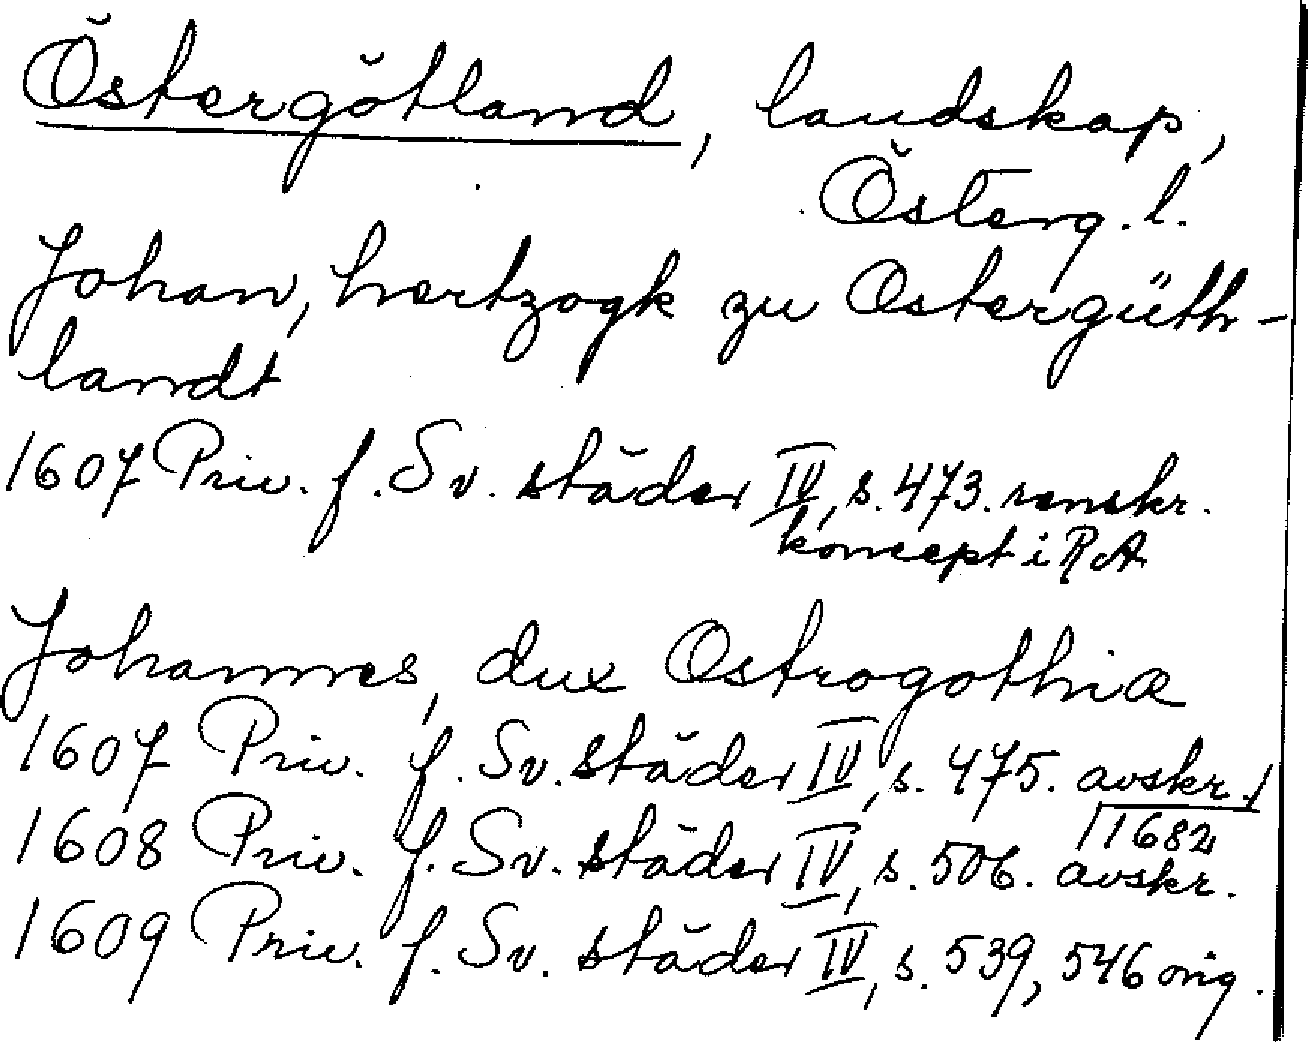 Östergötland, landskap,
Österg. l.
Johan, hertzogk zu Ostergüth-
landt
1607 Priv. f. Sv. städer IV, s. 473. renskr.
koncept i RA
Johannes, dux Ostrogothiæ
1607 Priv. f. Sv. städer IV, s. 475. avskr.
1682
1608 Priv. f. Sv. städer IV, s. 506. avskr.
1609 Priv. f. Sv. städer IV, s. 539, 546 orig.